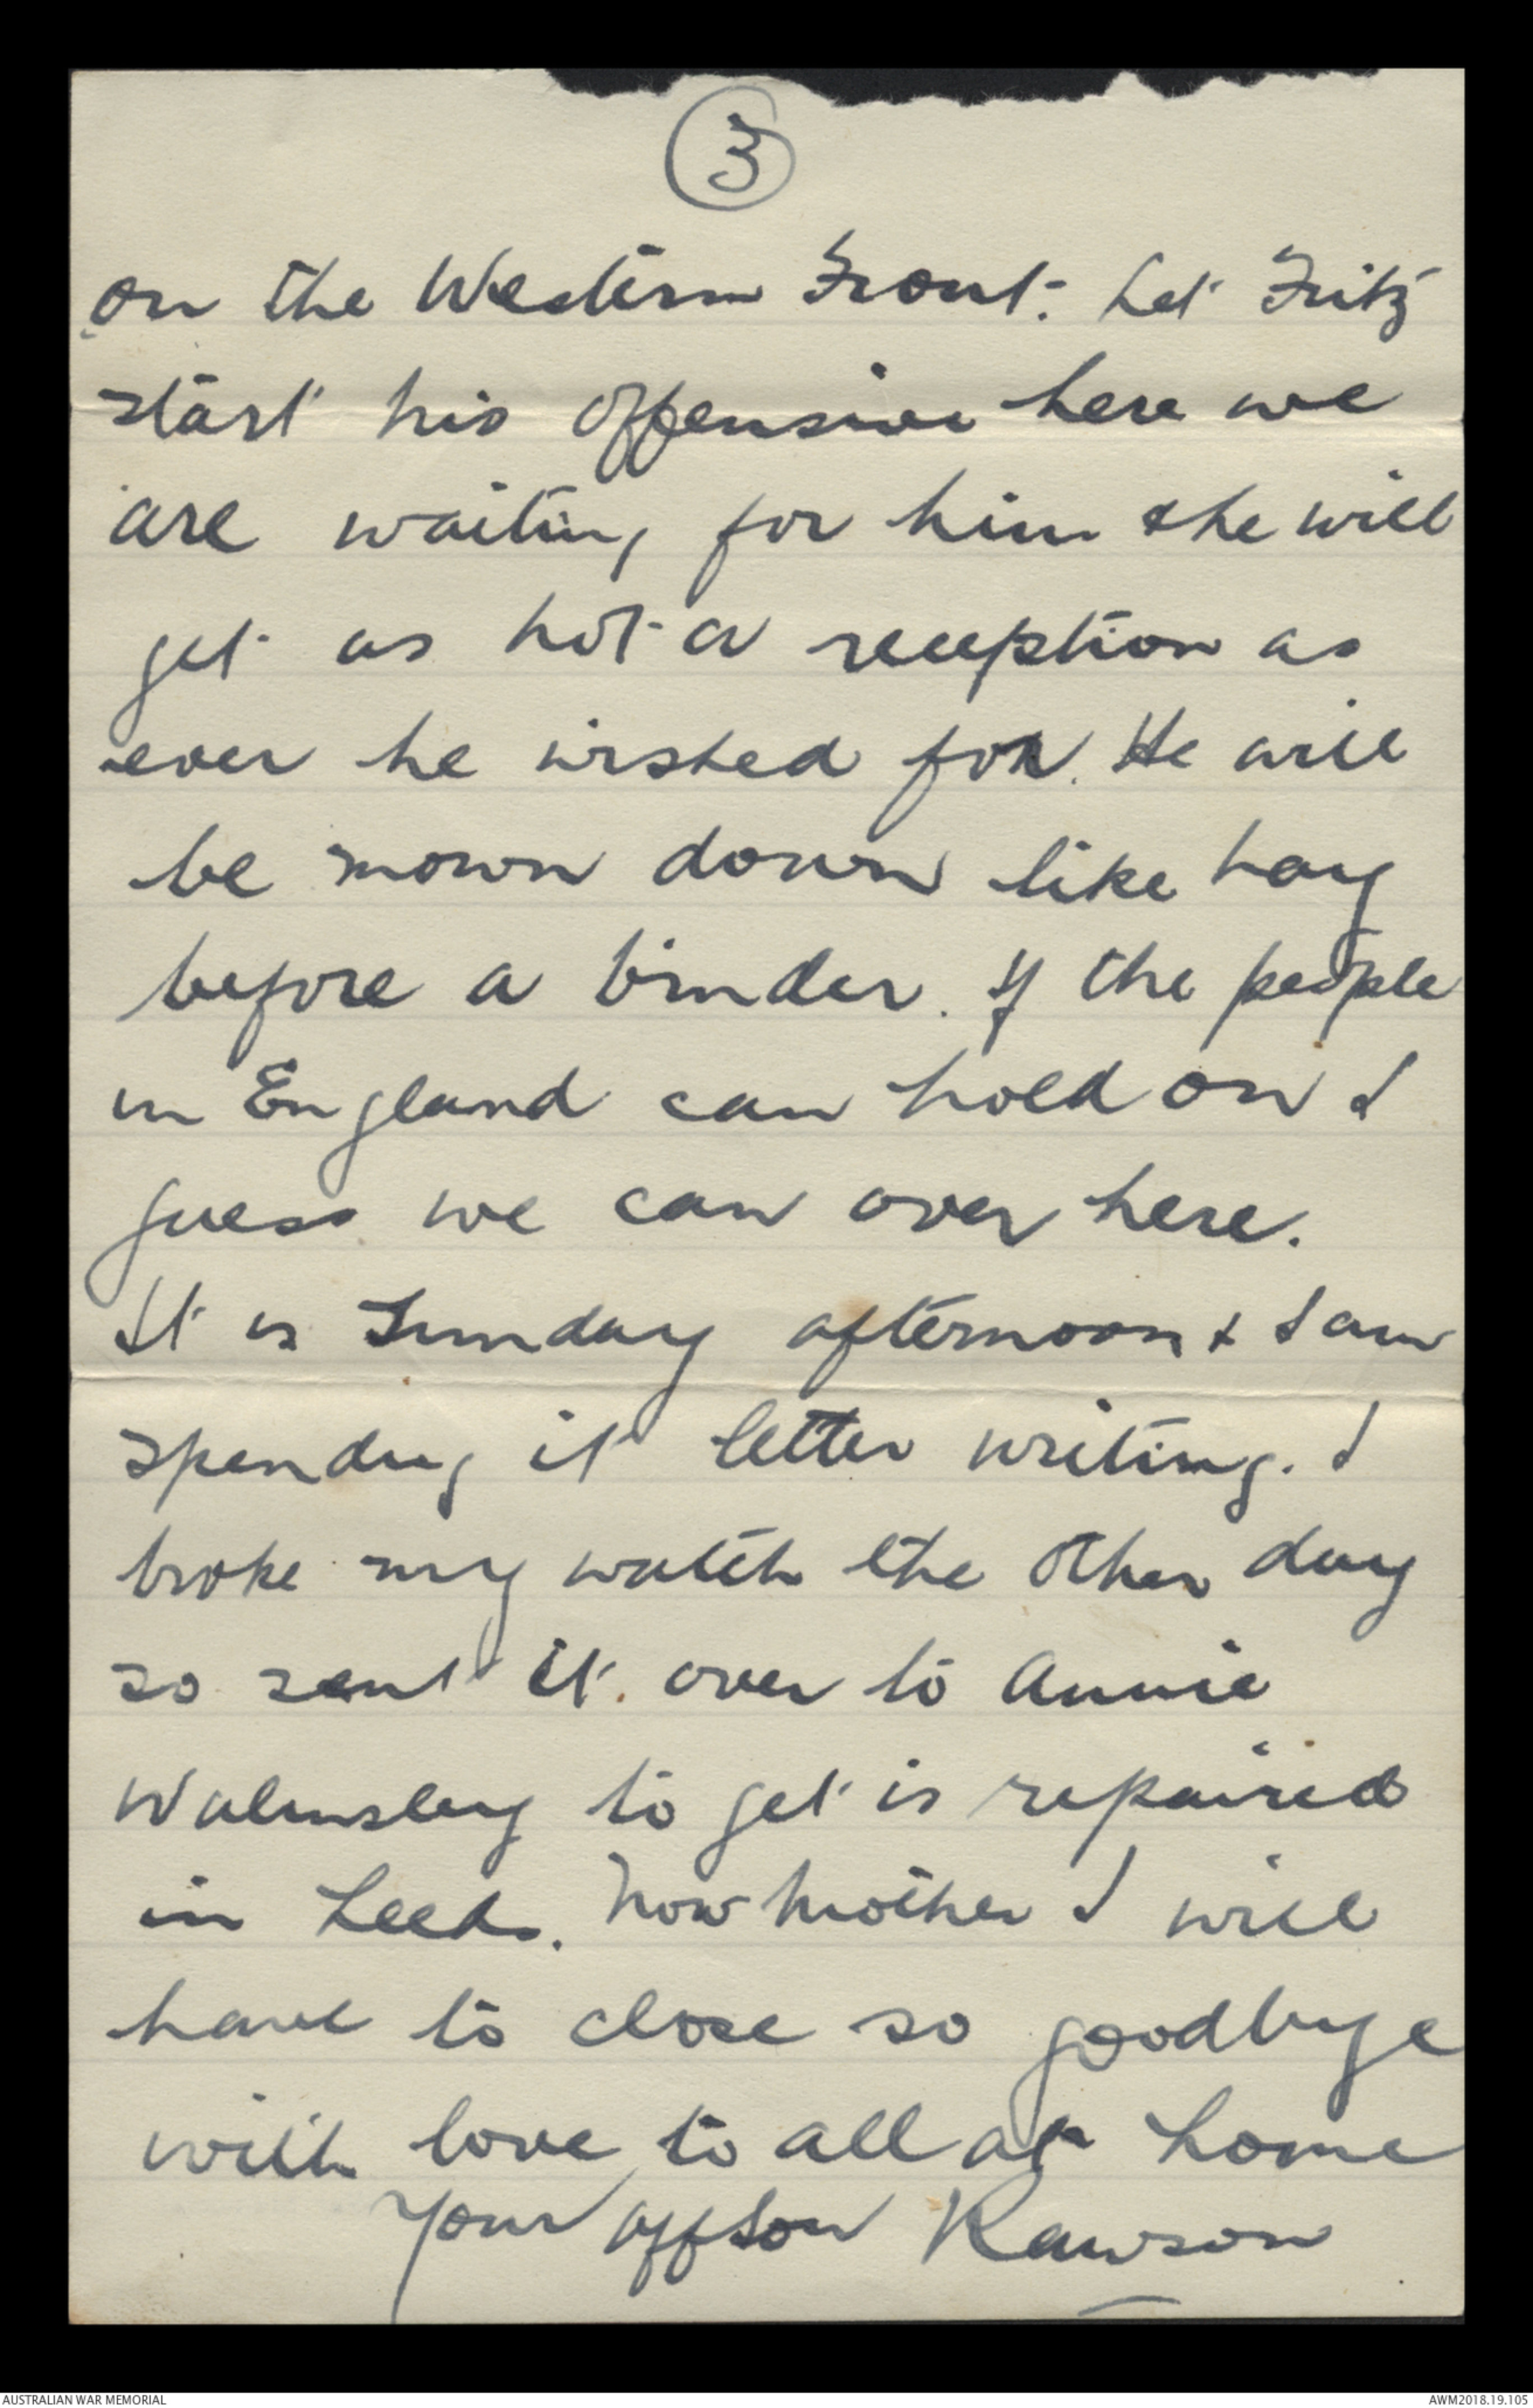 3
on the Western Front. Let Fritz
start his offensive here we
are waiting for him & he will
get as hot a reception as
ever he wished for. He will
be mown down like hay
before a binder. If the people
in England can hold on I
guess we can over here.
It is Sunday afternoon & I am
spending it letter writing. I
broke my watch the other day
so sent it over to Annie
Walmsley to get is repaired
in Leeds. Now Mother I will
have to close so goodbye
with love to all at home
Your aff son Rawson
AUSTRALIAN WAR MEMORIAL
AWM2018.19.105